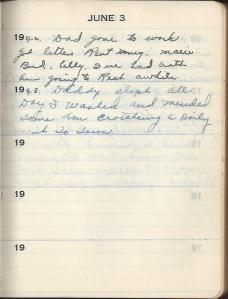 JUNE 3
1942. Dad gone to work
got letters Aunt marie
Bud, Lilly, I've had bath
am going to Rest awhile
1943. Daddy slept all
Day I washed and mended
some am crotcheing a Doily
went to town.
19
19
19